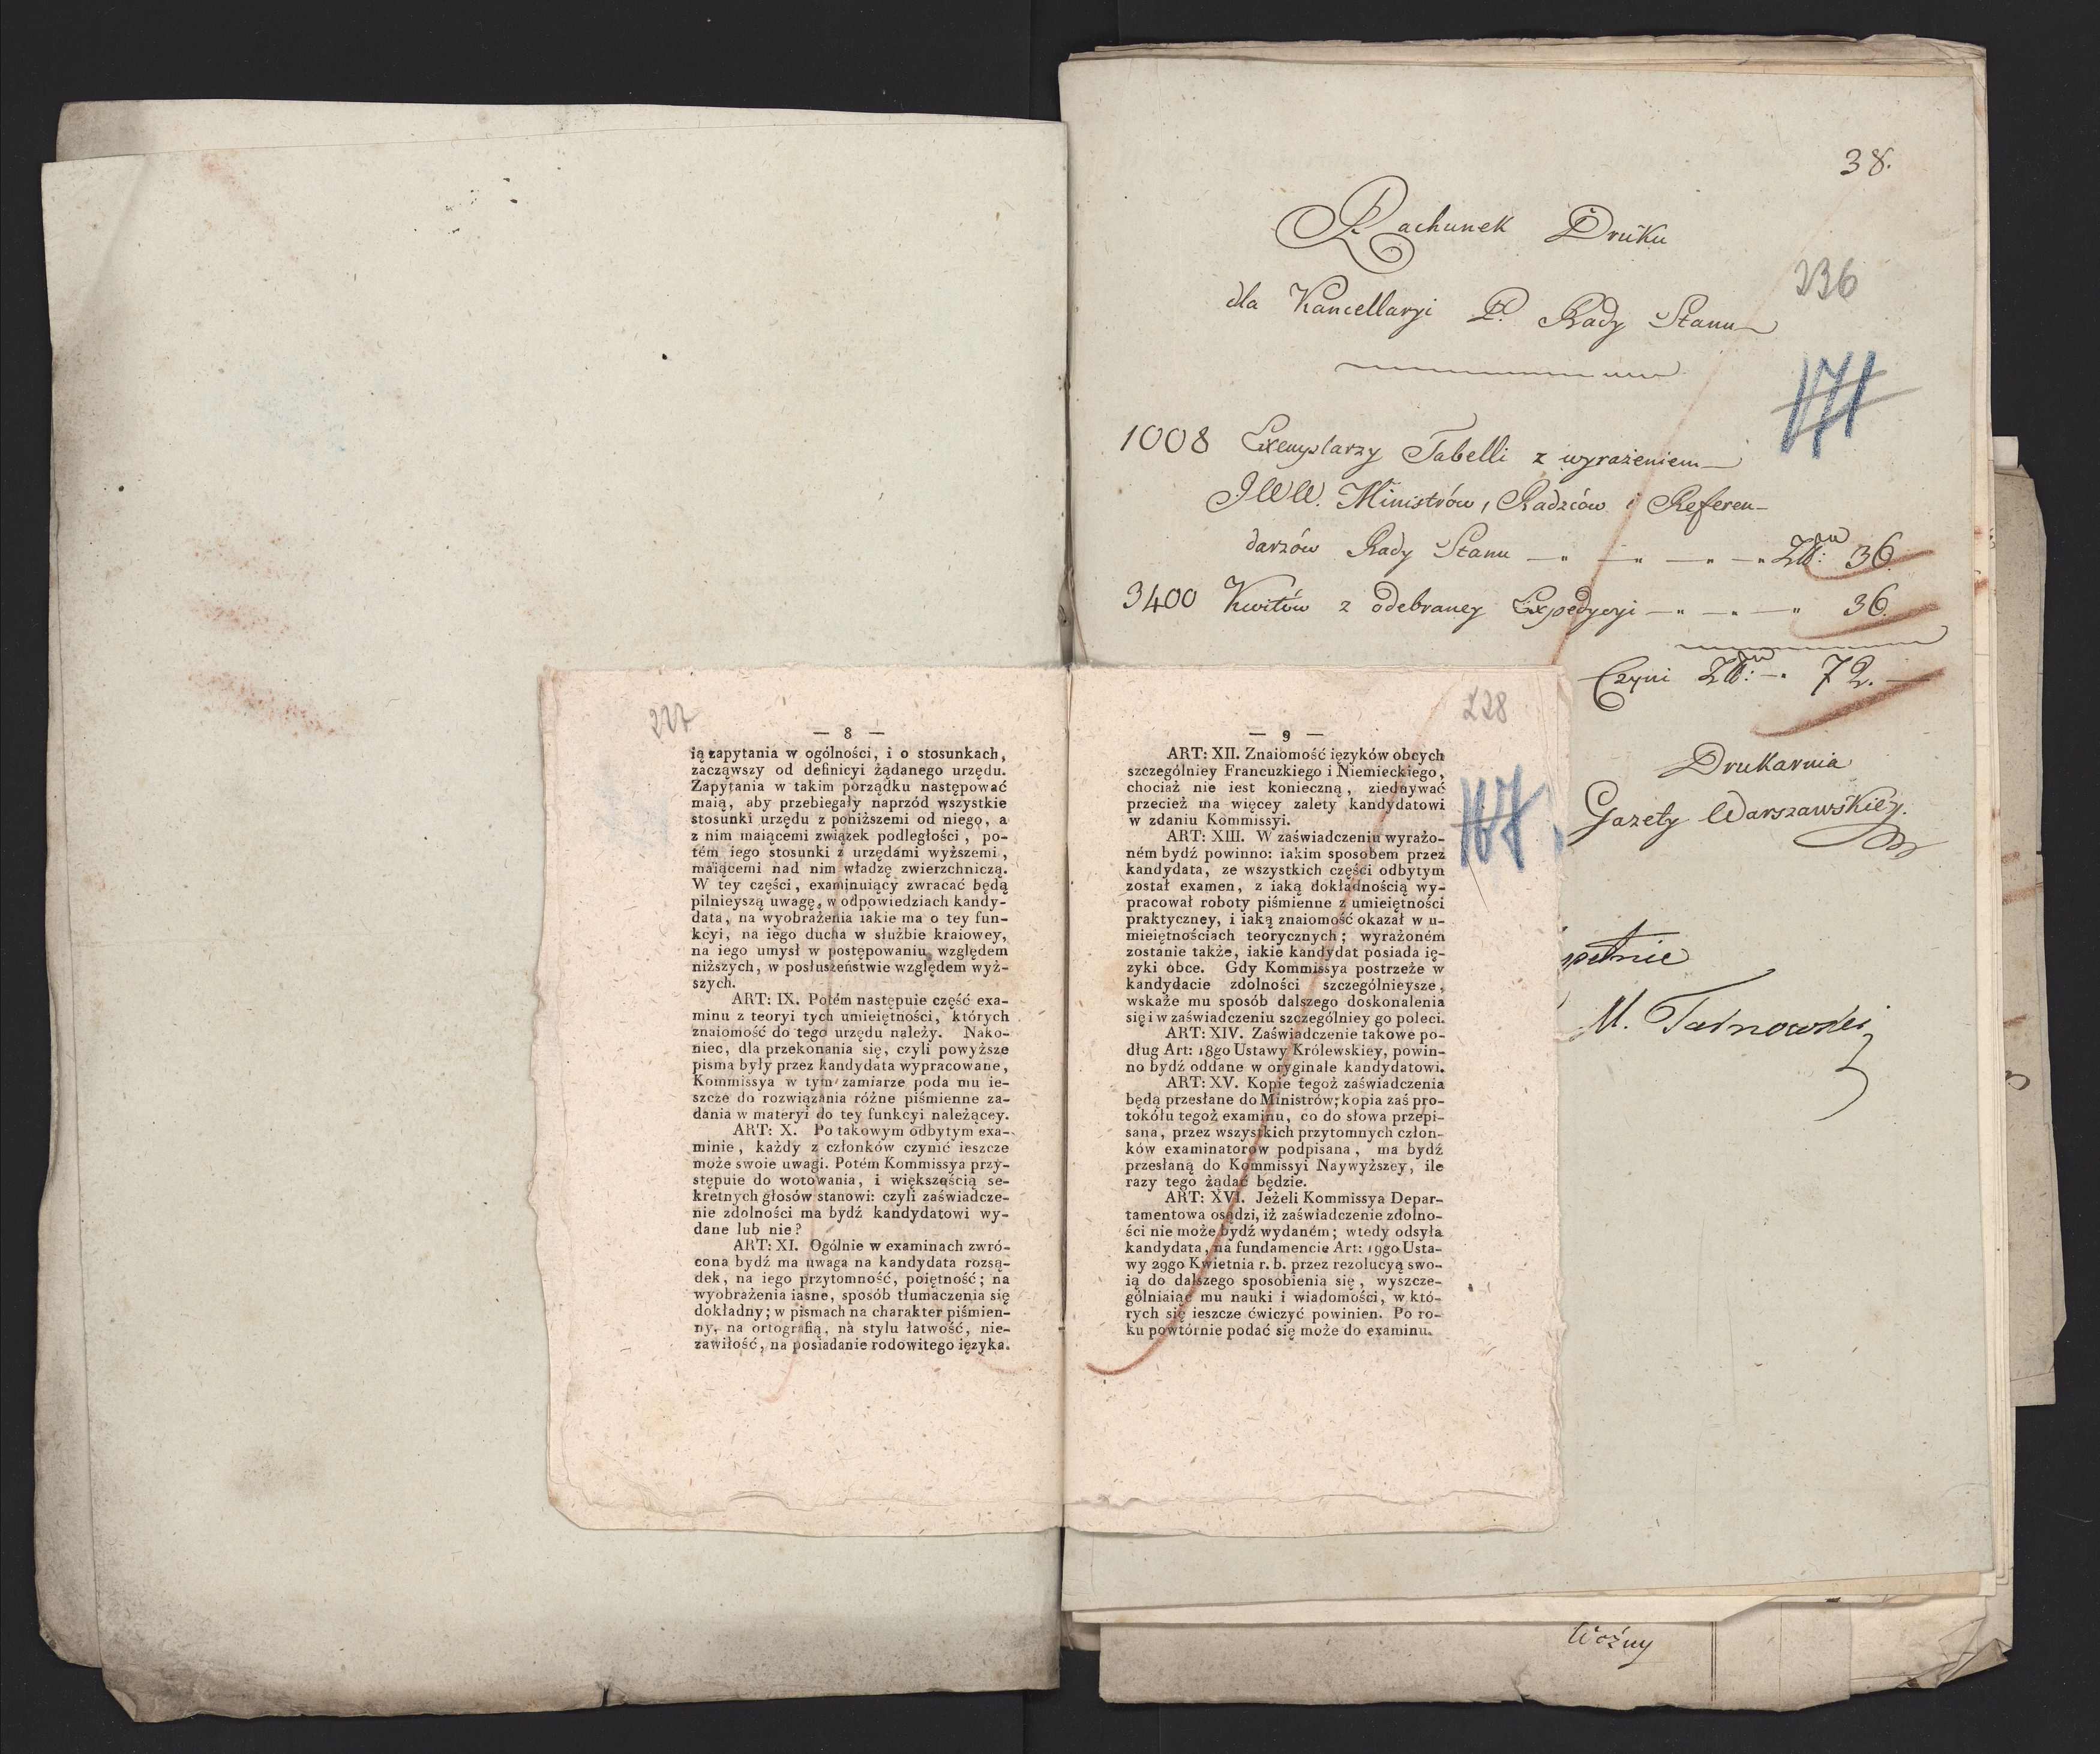 38.
Rachunek Druku
dla Kancellaryi P. Rady Stanu
236
171
1008 Exemplarzy Tabelli z wyrażeniem
JWW. Ministrów, Radzców i Referen-
darzów Rady Stanu — " — " — " — " Zł: 36
3400 Kwitów z odebraney Expedycyi — " — " — " 36.
Czyni Zł: — " 72. —
Drukarnia
Gazety Warszawskiey.
M. Tarnowski
Woźny
227
— 8 —
ią zapytania w ogólności, i o stosunkach,
zacząwszy od definicyi żądanego urzędu.
Zapytania w takim porządku następować
maią, aby przebiegały naprzód wszystkie
stosunki urzędu z poniższemi od niego, a
z nim maiącemi związek podległości, po-
tém iego stosunki z urzędami wyższemi,
maiącemi nad nim władzę zwierzchniczą.
W tey części, examinuiący zwracać będą
pilnieyszą uwagę, w odpowiedziach kandy-
data, na wyobrażenia iakie ma o tey fun-
kcyi, na iego ducha w służbie kraiowey,
na iego umysł w postępowaniu względem
niższych, w posłuszeństwie względem wyż-
szych.
ART: IX. Potém następuie część exa-
minu z teoryi tych umieiętności, których
znaiomość do tego urzędu należy. Nako-
niec, dla przekonania się, czyli powyższe
pisma były przez kandydata wypracowane,
Kommissya w tym zamiarze poda mu ie-
szcze do rozwiązania różne piśmienne za-
dania w materyi do tey funkcyi należącey.
ART: X. Po takowym odbytym exa-
minie, każdy z członków czynić ieszcze
może swoie uwagi. Potém Kommissya przy-
stępuie do wotowania, i większością se-
kretnych głosów stanowi: czyli zaświadcze-
nie zdolności ma bydź kandydatowi wy-
dane lub nie?
ART: XI. Ogólnie w examinach zwró-
cona bydź ma uwaga na kandydata rozsą-
dek, na iego przytomność, poiętność; na
wyobrażenia iasne, sposób tłumaczenia się
dokładny; w pismach na charakter piśmien-
ny, na ortografią, na stylu łatwość, nie-
zawiłość, na posiadanie rodowitego ięzyka.
228
167
— 9 —
ART: XII. Znaiomość ięzyków obcych
szczególniey Francuzkiego i Niemieckiego,
chociaż nie iest konieczną, ziednywać
przecież ma więcey zalety kandydatowi
w zdaniu Kommissyi.
ART: XIII. W zaświadczeniu wyrażo-
ném bydź powinno: iakim sposobem przez
kandydata, ze wszystkich części odbytym
został examen, z iaką dokładnością wy-
pracował roboty piśmienne z umieiętności
praktyczney, i iaką znaiomość okazał w u-
mieiętnościach teorycznych; wyrażoném
zostanie także, iakie kandydat posiada ię-
zyki obce. Gdy Kommissya postrzeże w
kandydacie zdolności szczególnieysze,
wskaże mu sposób dalszego doskonalenia
się i w zaświadczeniu szczególniey go poleci.
ART: XIV. Zaświadczenie takowe po-
dług Art: 18go Ustawy Królewskiey, powin-
no bydź oddane w oryginale kandydatowi.
ART: XV. Kopie tegoż zaświadczenia
będą przesłane do Ministrów; kopia zaś pro-
tokółu tegoż examinu, co do słowa przepi-
sana, przez wszystkich przytomnych człon-
ków examinatorów podpisana, ma bydź
przesłaną do Kommissyi Naywyższey, ile
razy tego żądać będzie.
ART: XVI. Jeżeli Kommissya Depar-
tamentowa osądzi, iż zaświadczenie zdolno-
ści nie może bydź wydaném; wtedy odsyła
kandydata, na fundamencie Art: 19go Usta-
wy 29go Kwietnia r. b. przez rezolucyą swo-
ią do dalszego sposobienia się, wyszcze-
gólniaiąc mu nauki i wiadomości, w któ-
rych się ieszcze ćwiczyć powinien. Po ro-
ku powtórnie podać się może do examinu.